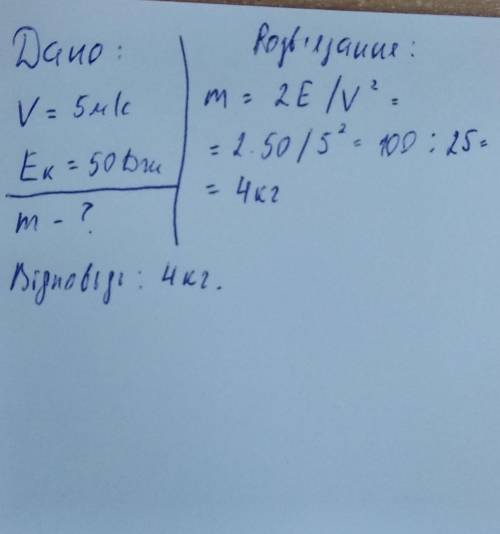 Дано:
V = 5м/с
Eк = 50Дж
m - ?
Розв'язання:
m = 2E/V² =
= 2·50/5² = 100 : 25 =
= 4кг
Відповідь: 4кг.